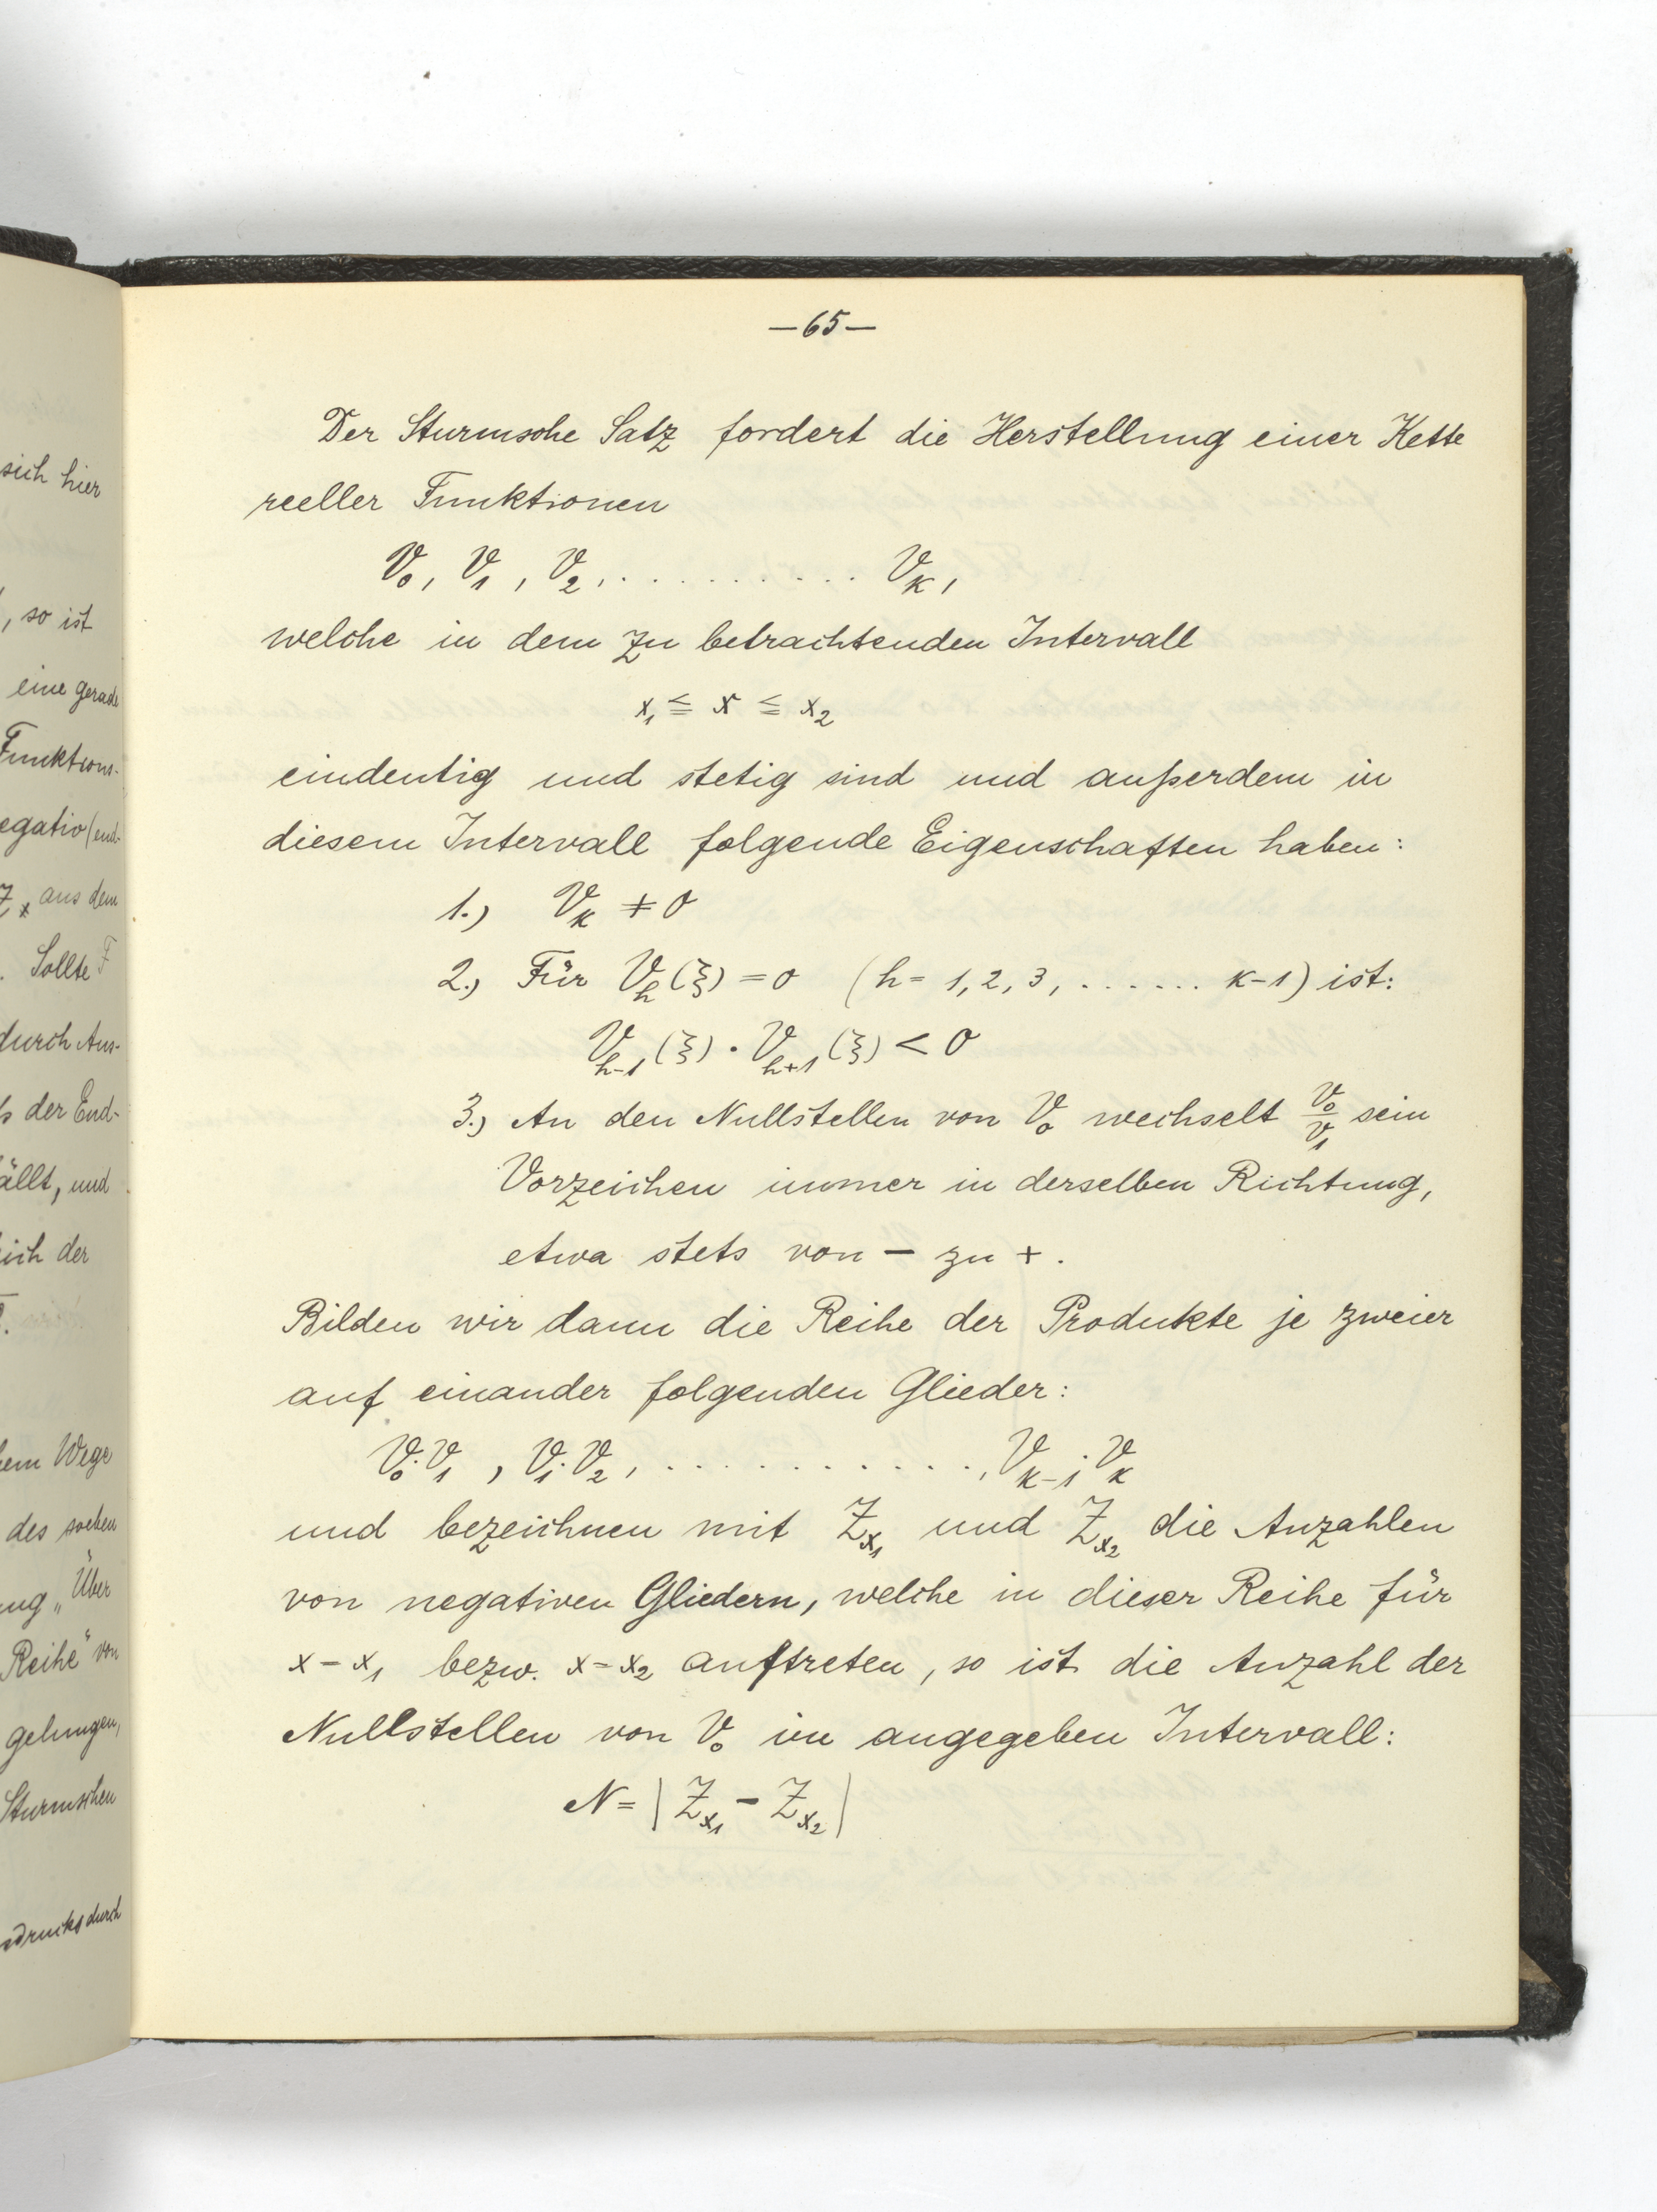 sich hier
, so ist
eine gerade
Funktions-
egativ (end-
Z_x aus dem
. Sollte F
durch Aus-
der End-
ällt, und
ich der
em Wege
des soeben
ung „Über
Reihe" von
gelungen,
Sturmschen
sdrucks durch
—65—
Der Sturmsche Satz fordert die Herstellung einer Kette
reeller Funktionen
V₀, V₁, V₂, . . . . . . . . . . Vₖ,
welche in dem zu betrachtenden Intervall
x₁ ≦ x ≦ x₂
eindeutig und stetig sind und außerdem in
diesem Intervall folgende Eigenschaften haben:
1.) Vₖ ≠ 0
2.) Für V_h(ξ) = 0 (h = 1, 2, 3, . . . . . . k-1) ist:
V_{h-1}(ξ) · V_{h+1}(ξ) < 0
3.) An den Nullstellen von V₀ wechselt V₀/V₁ sein
Vorzeichen immer in derselben Richtung,
etwa stets von — zu +.
Bilden wir dann die Reihe der Produkte je zweier
auf einander folgenden Glieder:
V₀·V₁, V₁·V₂, . . . . . . . . . . . ., V_{k-1}·Vₖ
und bezeichnen mit Z_{x₁} und Z_{x₂} die Anzahlen
von negativen Gliedern, welche in dieser Reihe für
x = x₁ bezw. x = x₂ auftreten, so ist die Anzahl der
Nullstellen von V₀ im angegeben Intervall:
N = | Z_{x₁} - Z_{x₂} |